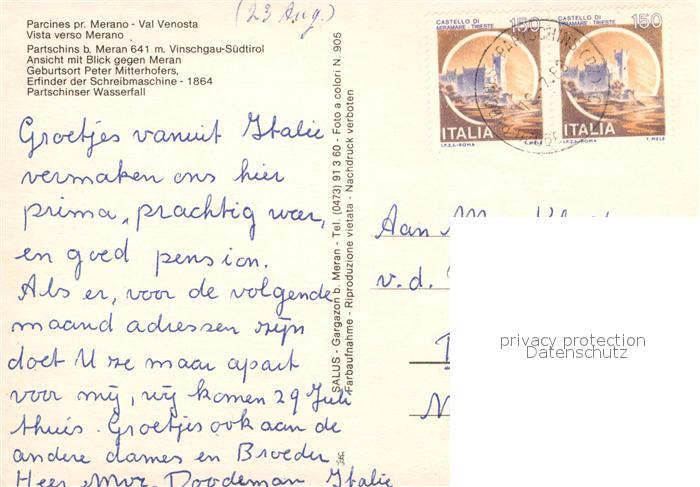 (23 Aug.)
Parcines pr. Merano - Val Venosta
Vista verso Merano
Partschins b. Meran 641 m. Vinschgau-Südtirol
Ansicht mit Blick gegen Meran
Geburtsort Peter Mitterhofers,
Erfinder der Schreibmaschine - 1864
Partschinser Wasserfall
Groetjes vanuit Italie
vermaken ons hier
prima, prachtig weer,
en goed pension.
Als er, voor de volgende
maand adressen zijn
doet U ze maar apart
voor mij, wij komen 29 Juli
thuis. Groetjes ook aan de
andere dames en Broeder
Heer Mvr. Doodeman Italie
SALUS - Gargazon b. Meran - Tel. (0473) 91 3 60 - Foto a colori N. 905
Farbaufnahme - Riproduzione vietata - Nachdruck verboten
CASTELLO DI
MIRAMARE - TRIESTE
150
ITALIA
I.P.Z.S.-ROMA T. MELE
CASTELLO DI
MIRAMARE - TRIESTE
150
ITALIA
I.P.Z.S.-ROMA T. MELE
PARTSCHINS (BZ)
Aan
v.d.
privacy protection
Datenschutz